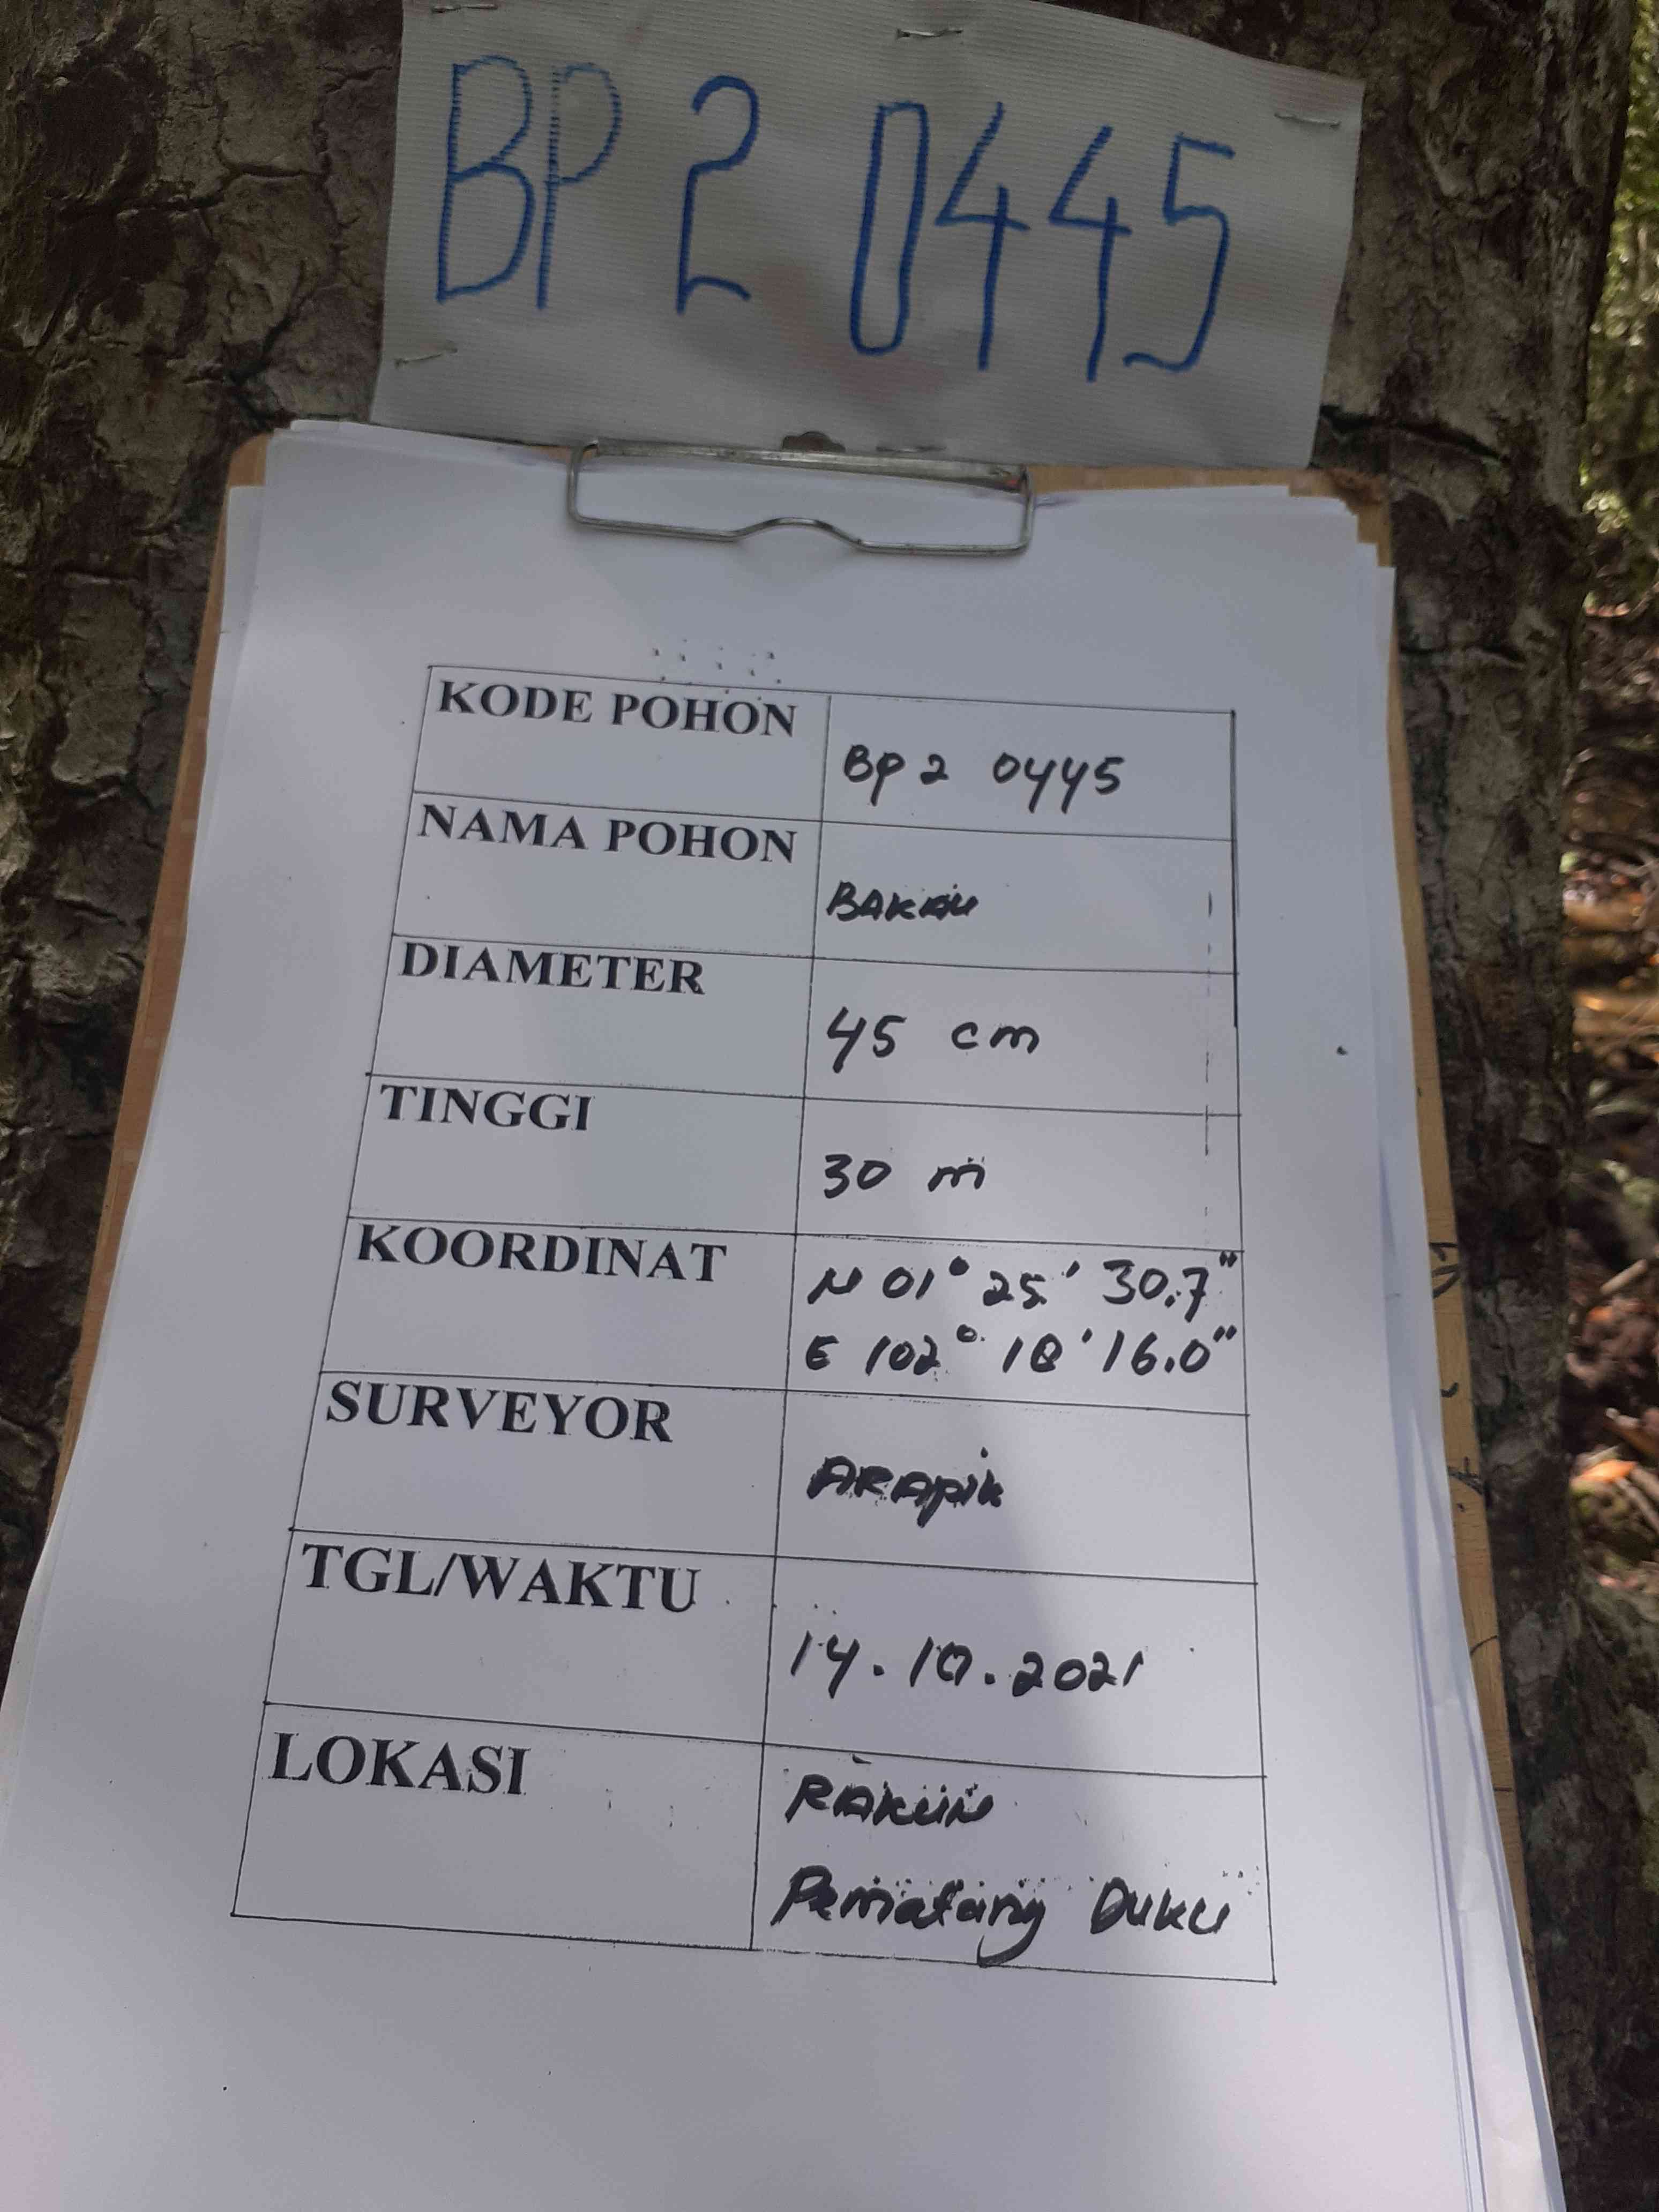 BP 2 0445
KODE POHON
BP 2 0445
NAMA POHON
BAKAU
DIAMETER
45 cm
TINGGI
30 m
KOORDINAT
N 01° 25' 30.7"
E 102° 18' 16.0"
SURVEYOR
ARAPIK
TGL/WAKTU
14.10.2021
LOKASI
RAKUN
Pematang Duku